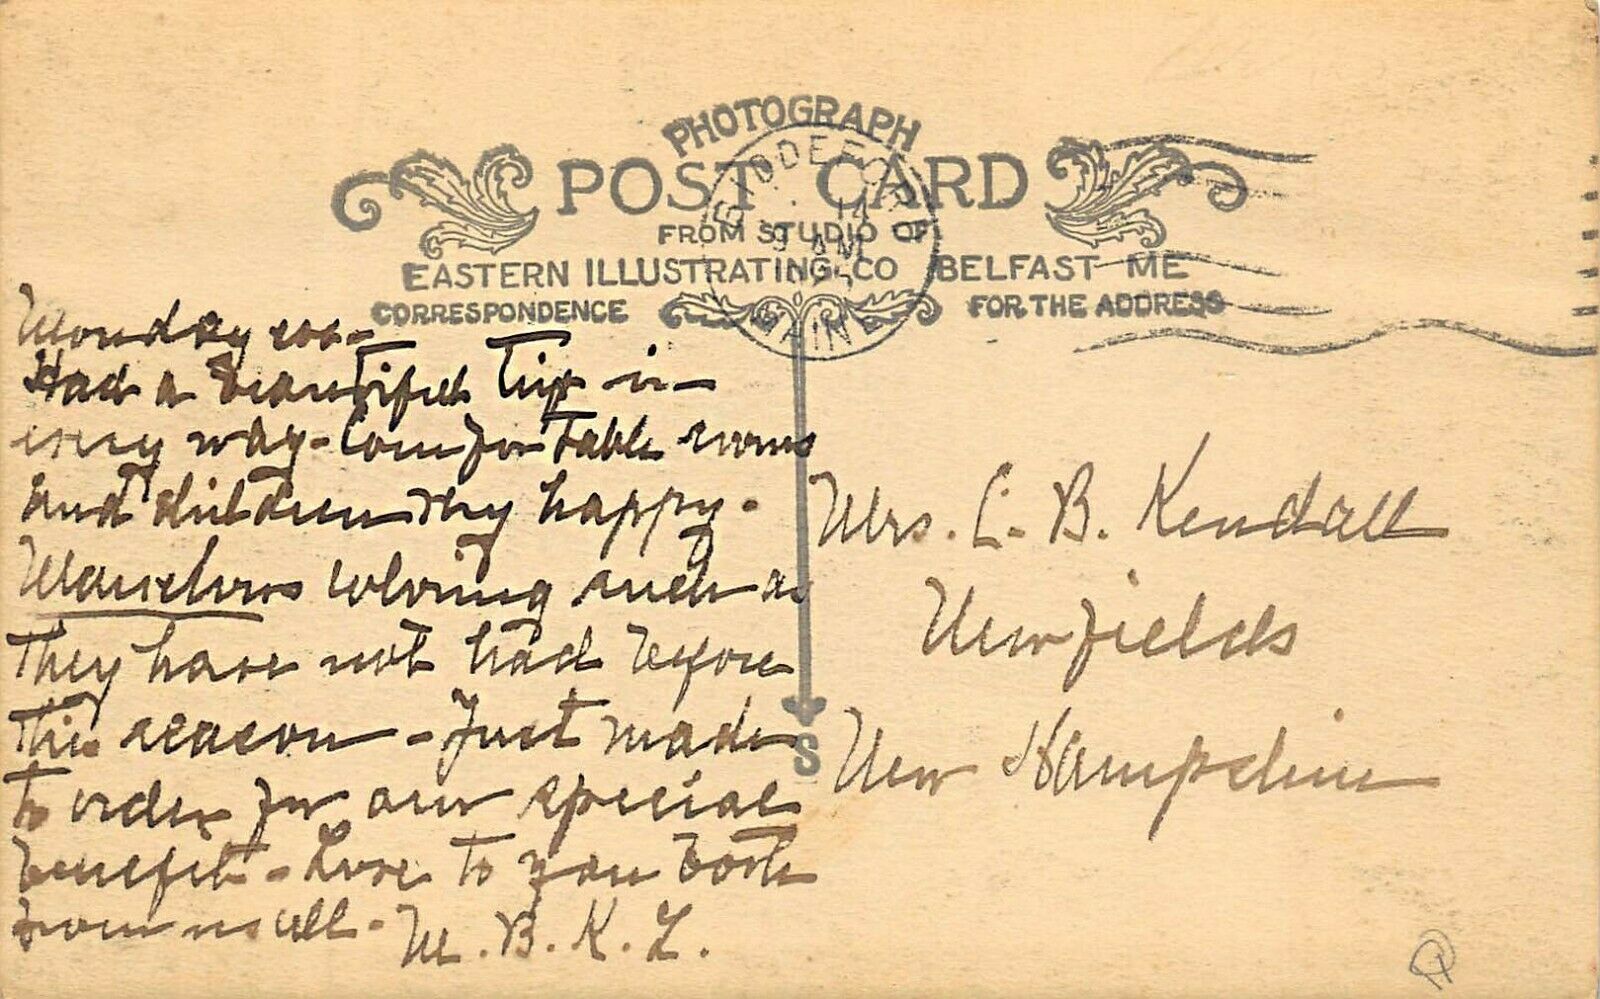 PHOTOGRAPH
POST CARD
FROM STUDIO OF
EASTERN ILLUSTRATING CO BELFAST ME
CORRESPONDENCE
FOR THE ADDRESS
BIDDEFORD
14
9 AM
MAINE
Monday eve-
Had a beautiful trip in
every way - Comfortable rooms
and children very happy -
Marvelous coloring such as
they have not had before
this season - Just made
to order for our special
benefit - Love to you both
from us all -
M. B. K. L.
Mrs. C. B. Kendall
Newfields
New Hampshire
S